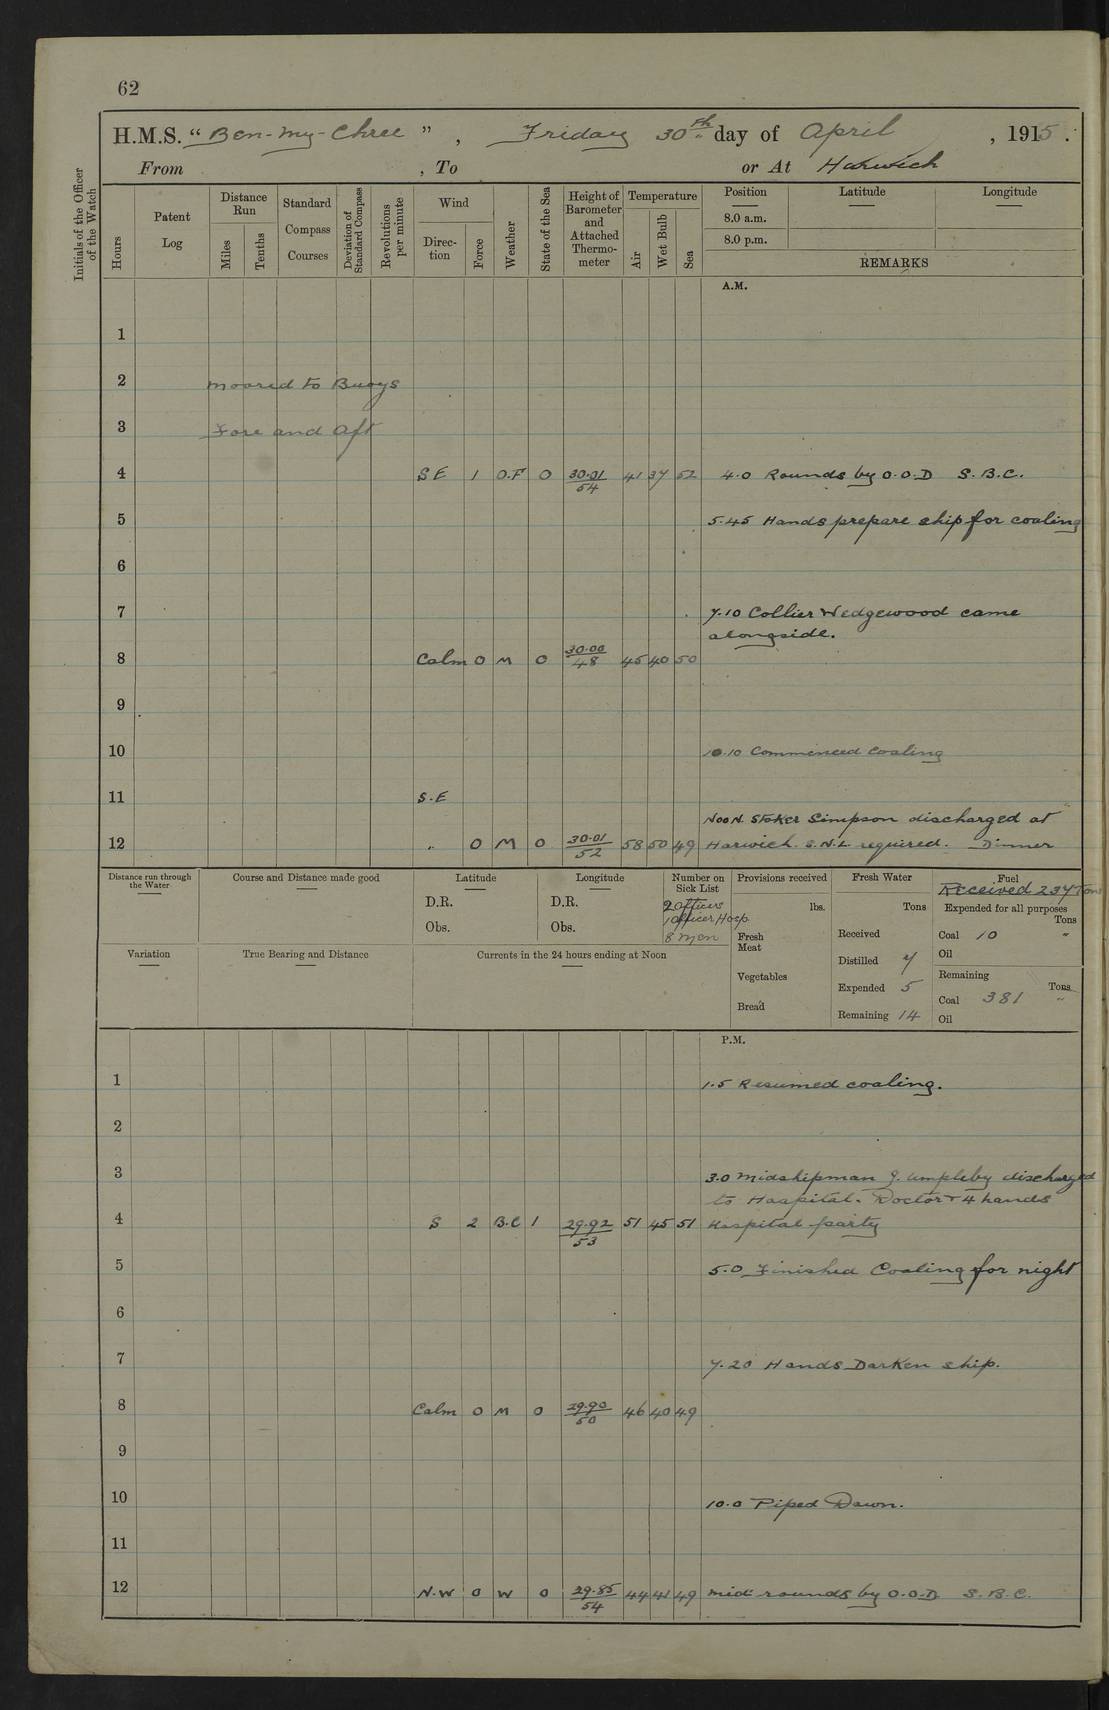 62
H.M.S. “ Ben-my-Chree ” , Friday 30th day of April , 1915 .
From , To or At Harwich
Initials of the Officer of the Watch
Hours
Patent Log
Distance Run
Miles
Tenths
Standard Compass Courses
Deviation of Standard Compass
Revolutions per minute
Wind
Direc-tion
Force
Weather
State of the Sea
Height of Barometer and Attached Thermo-meter
Temperature
Air
Wet Bulb
Sea
Position Latitude Longitude
8.0 a.m.
8.0 p.m.
REMARKS
A.M.
1
2 Moored to Buoys
3 Fore and Aft
4 SE 1 O.F 0 30.01/54 41 37 52 4.0 Rounds by O.O.D S.B.C.
5 5.45 Hands prepare ship for coaling
6
7 7.10 Collier Wedgewood came
alongside.
8 Calm 0 M 0 30.00/48 45 40 50
9
10 10.10 Commenced Coaling
11 S.E
Noon. Stoker Simpson discharged at
12 " 0 M 0 30.01/52 58 50 49 Harwich. S.N.L. required. Dinner
Distance run through the Water
Course and Distance made good
Latitude
D.R.
Obs.
Longitude
D.R.
Obs.
Number on Sick List
2 Officers
1 Officer Hosp.
8 Men
Provisions received
lbs.
Fresh Meat
Vegetables
Bread
Fresh Water
Tons
Received
Distilled 7
Expended 5
Remaining 14
Fuel
Received 237 Tons
Expended for all purposes
Tons
Coal 10 "
Oil
Remaining
Tons
Coal 381 "
Oil
Variation
True Bearing and Distance
Currents in the 24 hours ending at Noon
P.M.
1 1.5 Resumed coaling.
2
3 3.0 Midshipman J. Umpleby discharged
to Hospital. Doctor + 4 hands
4 S 2 B.C 1 29.92/53 51 45 51 Hospital party
5 5.0 Finished Coaling for night
6
7 7.20 Hands Darken ship.
8 Calm 0 M 0 29.90/50 46 40 49
9
10 10.0 Piped Down.
11
12 N.W 0 W 0 29.85/54 44 41 49 Mid: rounds by O.O.D S.B.C.